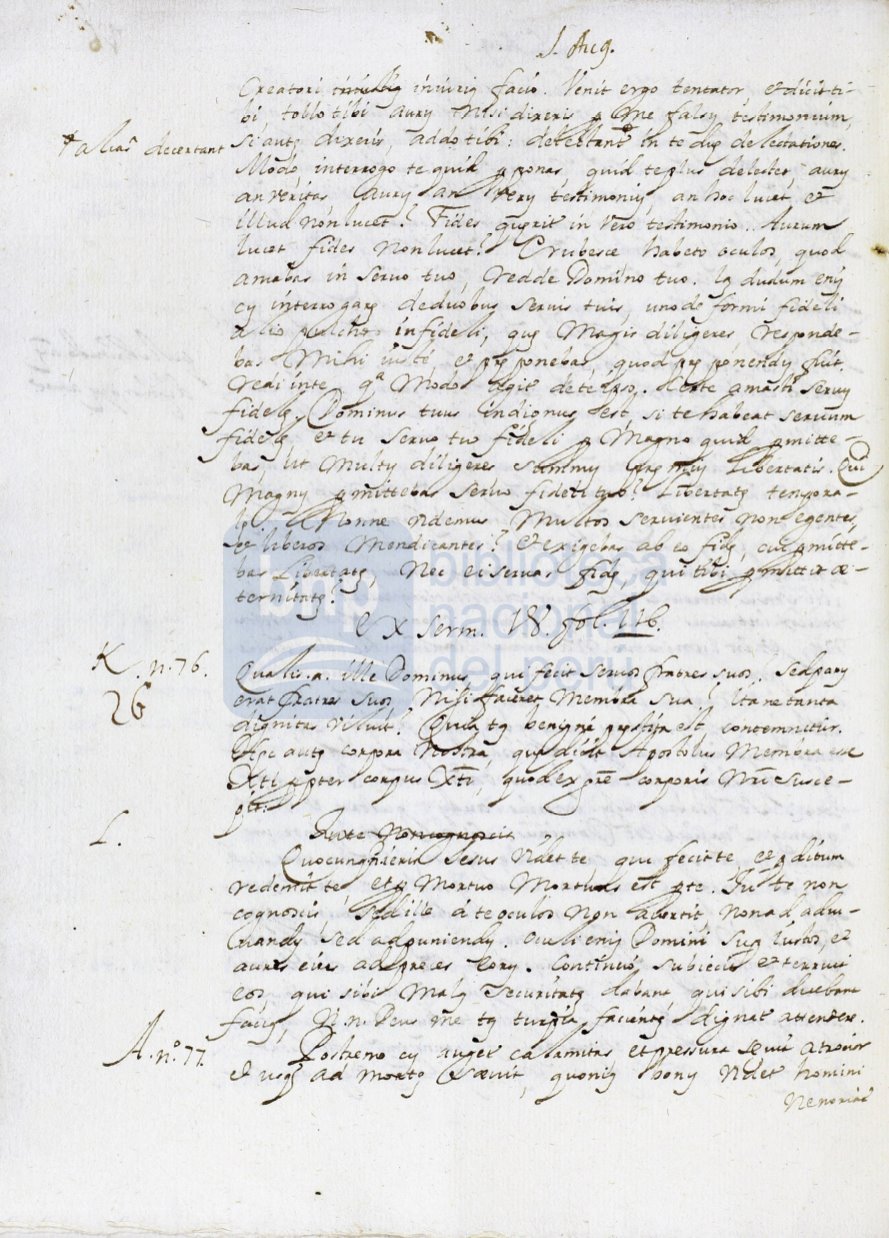 S. Aug.
Creatori iniuriã facio. Venit ergo tentator, et dicit ti-
bi tollo tibi aurũ nisi dixeris p me falsũ testimonium,
si autẽ dixeris, addo tibi: detestant in te duę delectationes.
+ alias decertant
Modo interrogo te quid pponas, quid te plus delectet, aurũ
an veritas aurũ an verũ testimoniũ, an hoc lucet, et
illud non lucet? Fides quęrit in vero testimonio. Aurum
lucet fides non lucet? Erubesce habeto oculos, quod
amabas in servo tuo, redde Domino tuo. Iã dudum enĩ
cũ interrogarẽ de duobus servis tuis, uno deformi fideli
alio pulchro infideli, quẽ magis diligeres responde-
bas mihi iustè, et pręponebas quod pręponendũ fuit.
redi in te qª modo agit de te ipso. Certe amasti servũ
fidelẽ. Dominus tuus indignus est, si te habeat servum
fidelẽ et tu servo tuo fideli p magno quid pmitte-
bas ut multũ diligeres summũ pręmiũ libertatis. Qui
magnũ pmittebas servo fideli tuo? Libertatẽ tempora-
lẽ. Nonne videmus multos servientes non egentes,
et liberos mendicantes? et exigebas ab eo fidẽ, cui pmitte-
bas libertatẽ, nec ei servas fidẽ, qui tibi pmittit æ-
ternitatẽ?
Ex serm. 18. fol. 116.
K. n. 76.
26
Qualis .a. ille Dominus, qui fecit servos fratres suos? Sed parũ
erat fratres suos nisi faceret membra sua? Ita ne tanta
dignitas viluit? Quia tã benignè pręstita est contemnitur.
autẽ corpora nostra, quę dicit Apostolus membra esse
Xti ppter corpus Xti, quod ex grẽ corporis nri susce-
pit.
L.
Iuxte non cognoscis
Quocunq ieris Iesus videt te qui fecit te, et pditum
redemit te et p mortuo mortuus est p te. Tu te non
cognoscis, sed ille à te oculos non avertit, non ad adiu-
vandũ sed ad puniendũ. oculi enĩ Domini sup iustos, et
aures eius ad preces eorũ. Continuò, subiecit et terruit
eos, qui sibi malã securitatẽ dabant qui sibi dicebant
faciã, N.n. Deus me tã turpia facientẽ dignat attendere.
A. nº 77.
Postremo cũ auget calamitas et pressura sęvit atrocior
et usq ad mortẽ sævit, quoniã bonũ videt homini
ne moriat